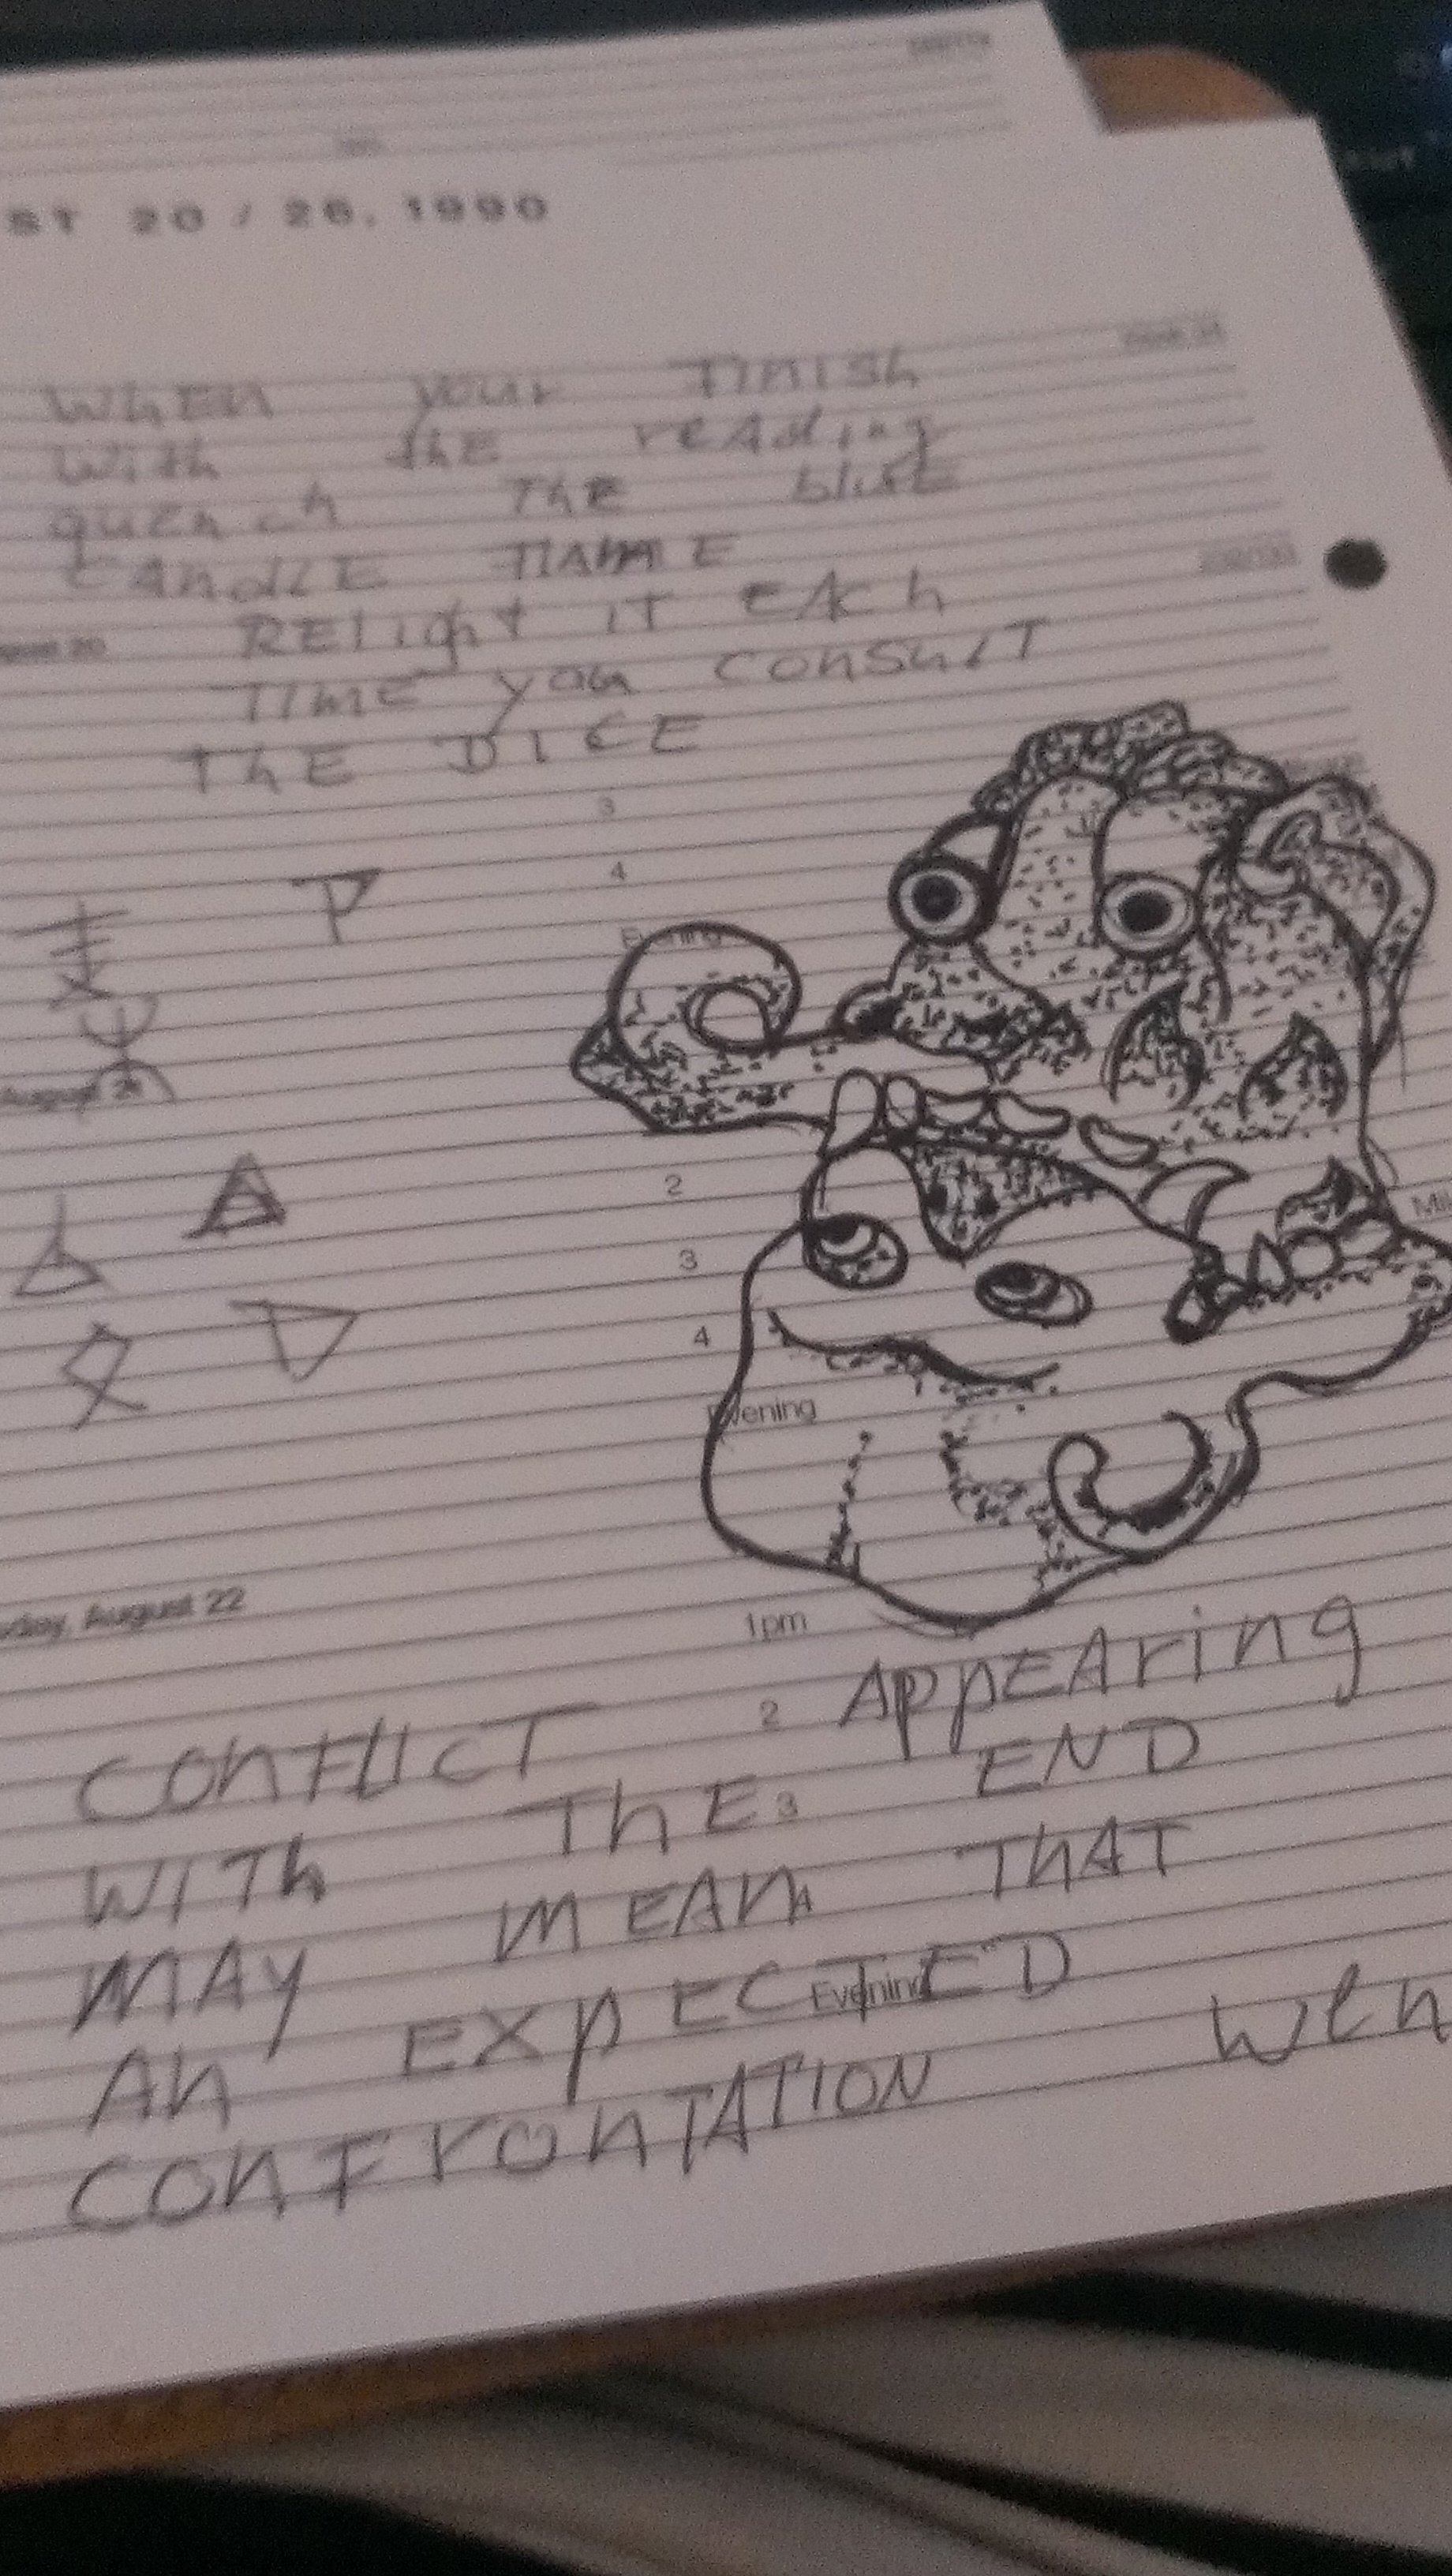 ST 20 / 26, 1990
WhEn your FINISh
With thE reAding
quench ThE bluE
CAndlE FlAmE
RElight IT EAch
TIME you consulT
thE DICE
3
4
Evening
August 21
2
3
4
Evening
day, August 22
1pm
2
3
Evening
ConFlIcT AppEAring
WITh ThE END
MAy mEAn ThAT
An ExpECTED
ConFronTATION wen